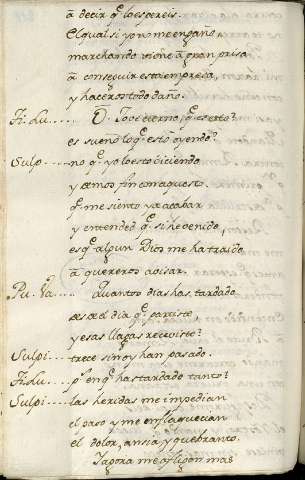 a decir q̃ lo esereis.
El qual si yo no me engaño,
marchando viene a gran prisa
a conseguir esta empresa,
y haceros todo daño.
Fi.du..... O Jove eterno, q̃ es esto?
es sueño lo q̃ estoy oyendo?
Sulp..... no q̃ yo lo estoy diciendo
y demos fin con aquesto.
q̃ me siento ya acabar
y entended q̃ si he venido,
es q̃ algun Dios me ha traido
a quereros avisar.
Pu. Va.... Quantos dias has tardado
desde el dia q̃ partiste
y esas llagas receviste?
Sulpi.... trece si no y han pasado.
Fi.du.... pues en q̃ has tardado tanto?
Sulpi.... las heridas me impedian
el paso y me enflaquecian
el dolor, ansia y quebranto.
Y agora me afligen mas